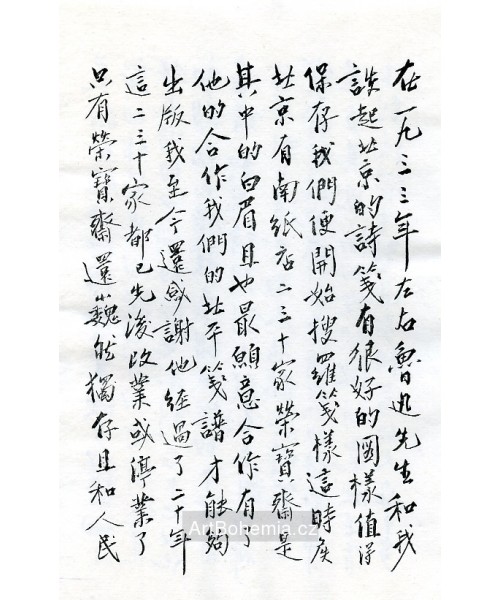 在一九三三年左右魯迅先生和我
談起北京的詩箋有很好的圖樣值得
保存我們便開始搜羅箋樣這時候
北京有南紙店二三十家榮寶齋是
其中的白眉且也最願意合作有了
他的合作我們的北平箋譜才能夠
出版我至今還感謝他經過了二十年
這二三十家都已先後改業或停業了
只有榮寶齋還巍然獨存且和人民
ArtBohemia.cz